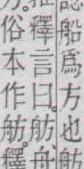 船爲方也舫
釋言曰舫舟
俗本作舫釋